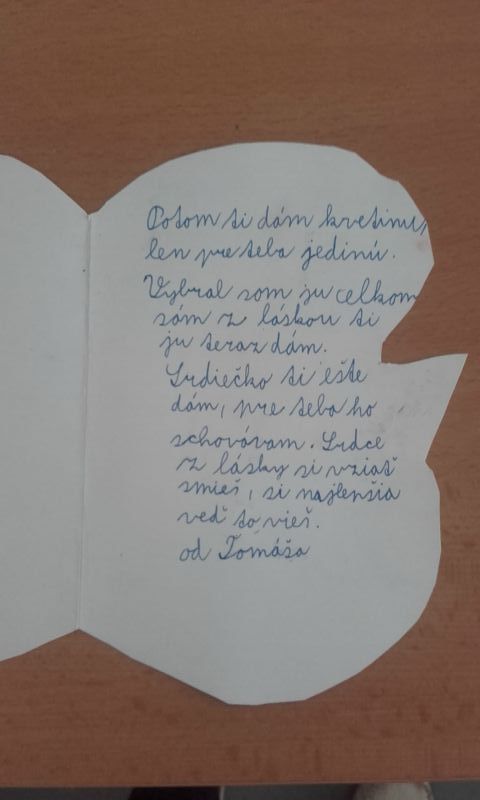 Potom ti dám kvetinu,
len pre teba jedinú.
Vybral som ju celkom
sám z láskou ti
ju teraz dám.
Srdiečko ti ešte
dám, pre teba ho
schovávam. Srdce
z lásky si vziať
smieš, si najlenšia
veď to vieš.
od Tomáša